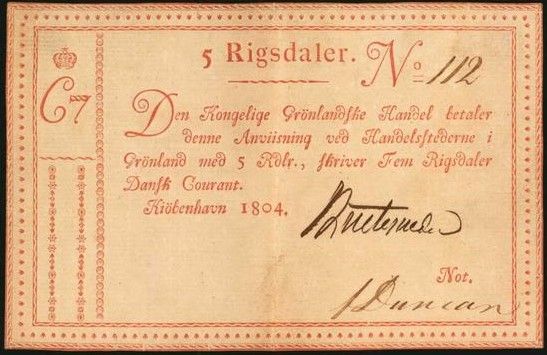 5 Rigsdaler. No 112
C7
Den Kongelige Grönlandske Handel betaler
denne Anviisning ved Handelsstederne i
Grönland med 5 Rdlr., skriver Fem Rigsdaler
Dansk Courant.
Kiöbenhavn 1804.
Not.
Duncan